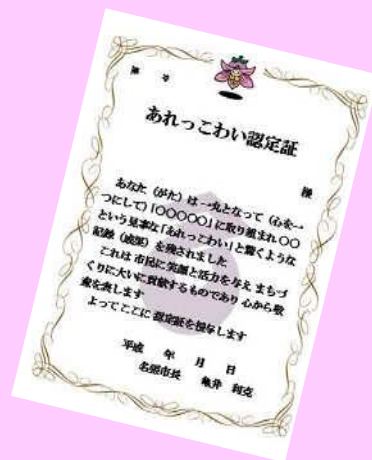 第　　号
あれっこわい認定証
様
あなた（がた）は一丸となって（心を一
つにして）「〇〇〇〇〇」に取り組まれ〇〇
という見事な「あれっこわい」と驚くような
記録（成果）を残されました
これは市民に笑顔と活力を与え まちづ
くりに大いに貢献するものであり 心から敬
意を表します
よってここに 認定証を授与します
平成　　年　　月　　日
名張市長　亀井　利克